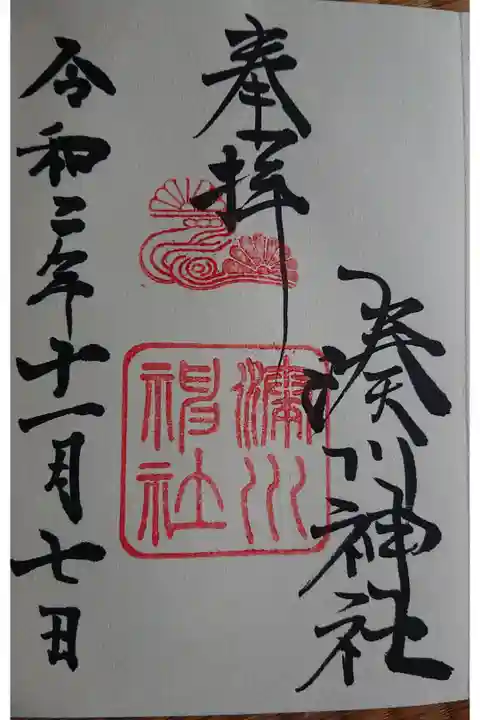 湊川神社
奉拝
湊川
神社
令和二年十一月七日